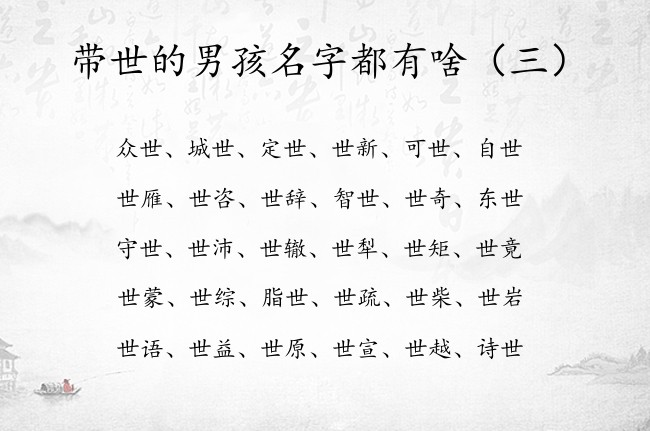 带世的男孩名字都有啥（三）
众世、城世、定世、世新、可世、自世
世雁、世咨、世辞、智世、世奇、东世
守世、世沛、世辙、世犁、世矩、世竟
世蒙、世综、脂世、世疏、世柴、世岩
世语、世益、世原、世宣、世越、诗世